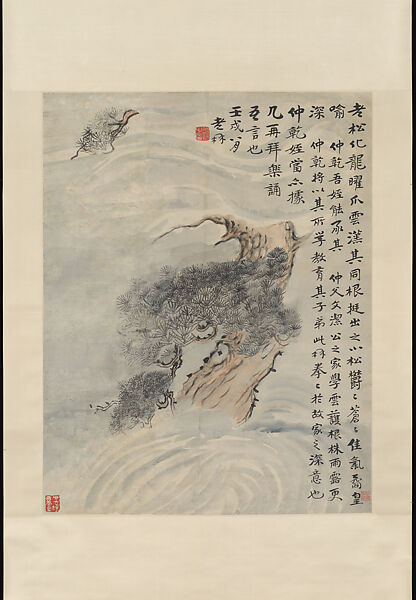 老松化龍曜爪雲漢其同根挺出之小松鬱〻蒼〻佳氣喬皇
喻仲乾吾姪能承其仲父文潔公之家學雲護根株雨露更
深仲乾將以其所學教育其子弟此林拳〻於故家之深意也
仲乾姪當亦據
几再拜樂誦
吾言也
壬戌八月
老林